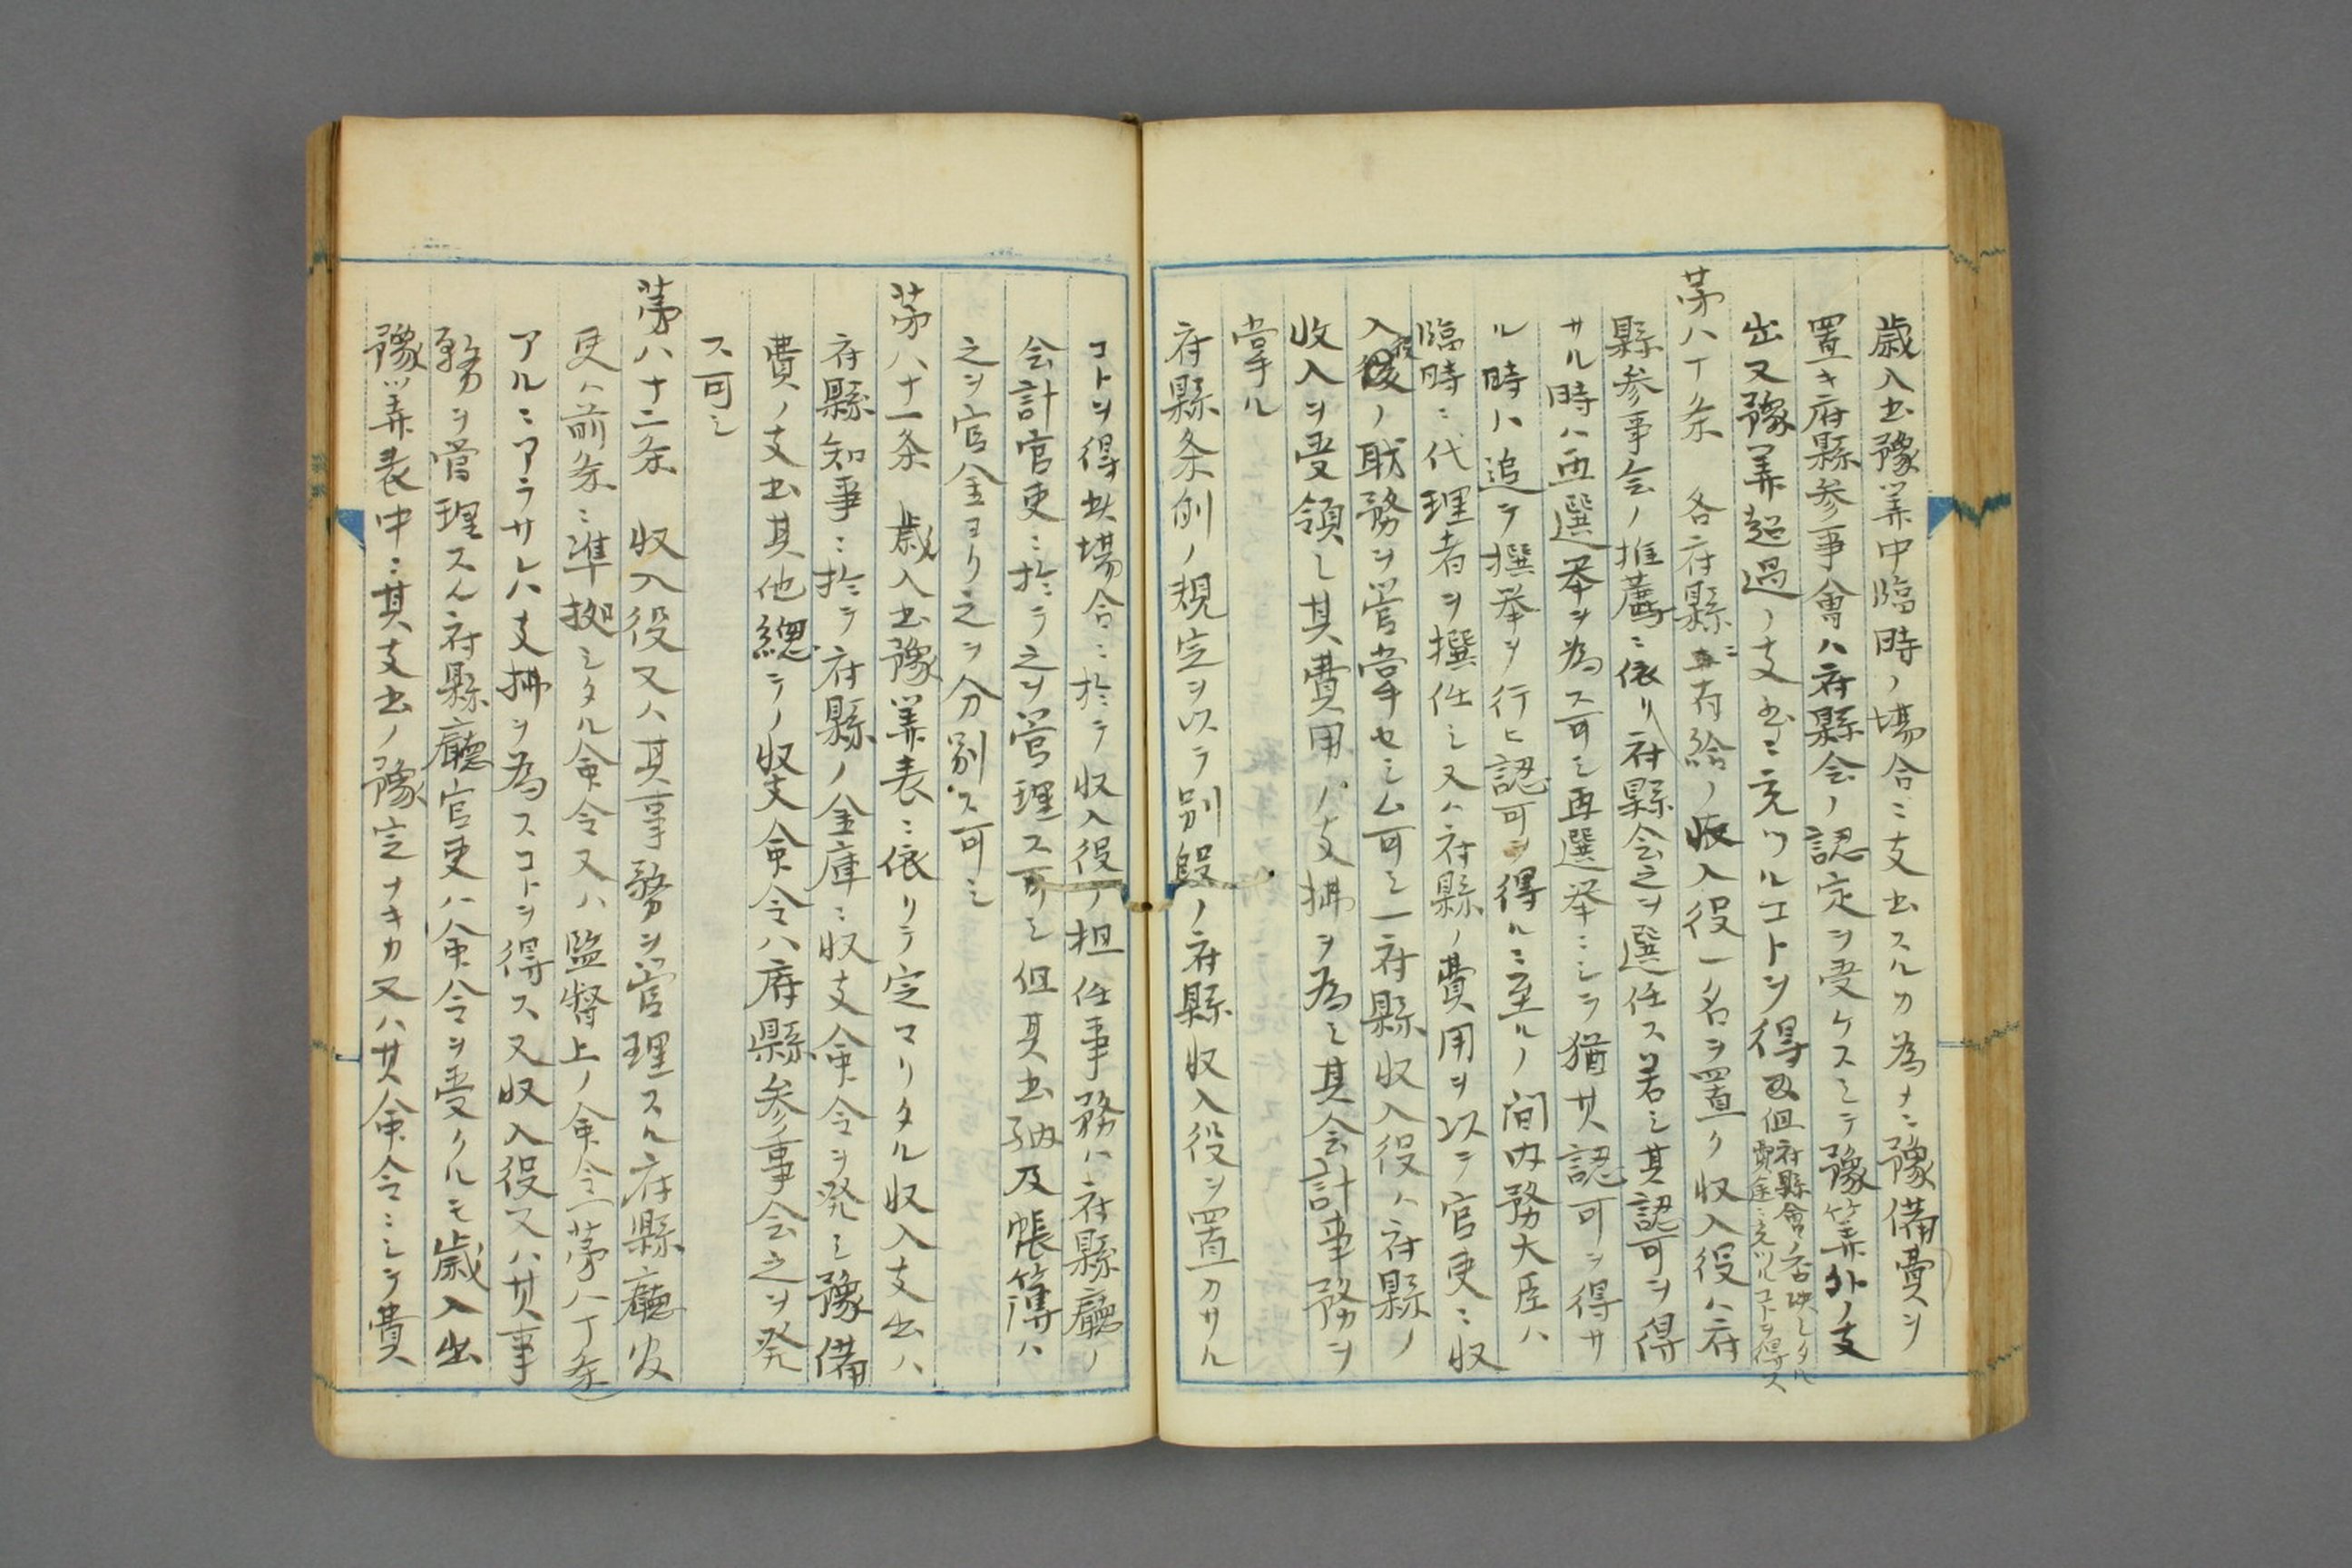 歳入出豫算中臨時ノ場合ニ支出スルカ為メニ豫備費ヲ
置キ府縣参事會ハ府縣会ノ認定ヲ受ケスシテ豫算外ノ支
出又豫算超過ノ支出ニ充ツルコトヲ得但府縣會ノ否決シタル
費途ニ充ツルコトヲ得ス
第八十条 各府縣ニ有給ノ収入役一名ヲ置ク収入役ハ府
縣参事会ノ推薦ニ依リ府縣会之ヲ選任ス若シ其認可ヲ得
サル時ハ再選挙ヲ為ス可シ再選挙ニシテ猶其認可ヲ得サ
ル時ハ追テ撰挙ヲ行ヒ認可ヲ得ルニ至ルノ間内務大臣ハ
臨時ニ代理者ヲ撰任シ又ハ府縣ノ費用ヲ以テ官吏ニ収
入役ノ職務ヲ管掌セシム可シ一府縣収入役ハ府縣ノ
收入ヲ受領シ其費用ノ支拂ヲ為シ其会計事務ヲ
掌ル
府縣条例ノ規定ヲ以テ別段ノ府縣収入役ヲ置カサル
コトヲ得此場合ニ於テ収入役ノ担任事務ハ府縣廳ノ
会計官吏ニ於テ之ヲ管理ス可シ但其出納及帳簿ハ
之ヲ官金ヨリ之ヲ分別ス可シ
第八十一条 歳入出豫算表ニ依リテ定マリタル収入支出ハ
府縣知事ニ於テ府縣ノ金庫ニ収支命令ヲ発シ豫備
費ノ支出其他總テノ収支命令ハ府縣参事会之ヲ発
ス可シ
第八十二条 収入役又ハ其事務ヲ管理スル府縣廳官
吏ハ前条ニ準拠シタル命令又ハ監督上ノ命令(第八十条)
アルニアラサレハ支拂ヲ為スコトヲ得ス又収入役又ハ其事
務ヲ管理スル府縣廳官吏ハ命令ヲ受クルモ歳入出
豫算表中ニ其支出ノ豫定ナキカ又ハ其命令ニシテ費